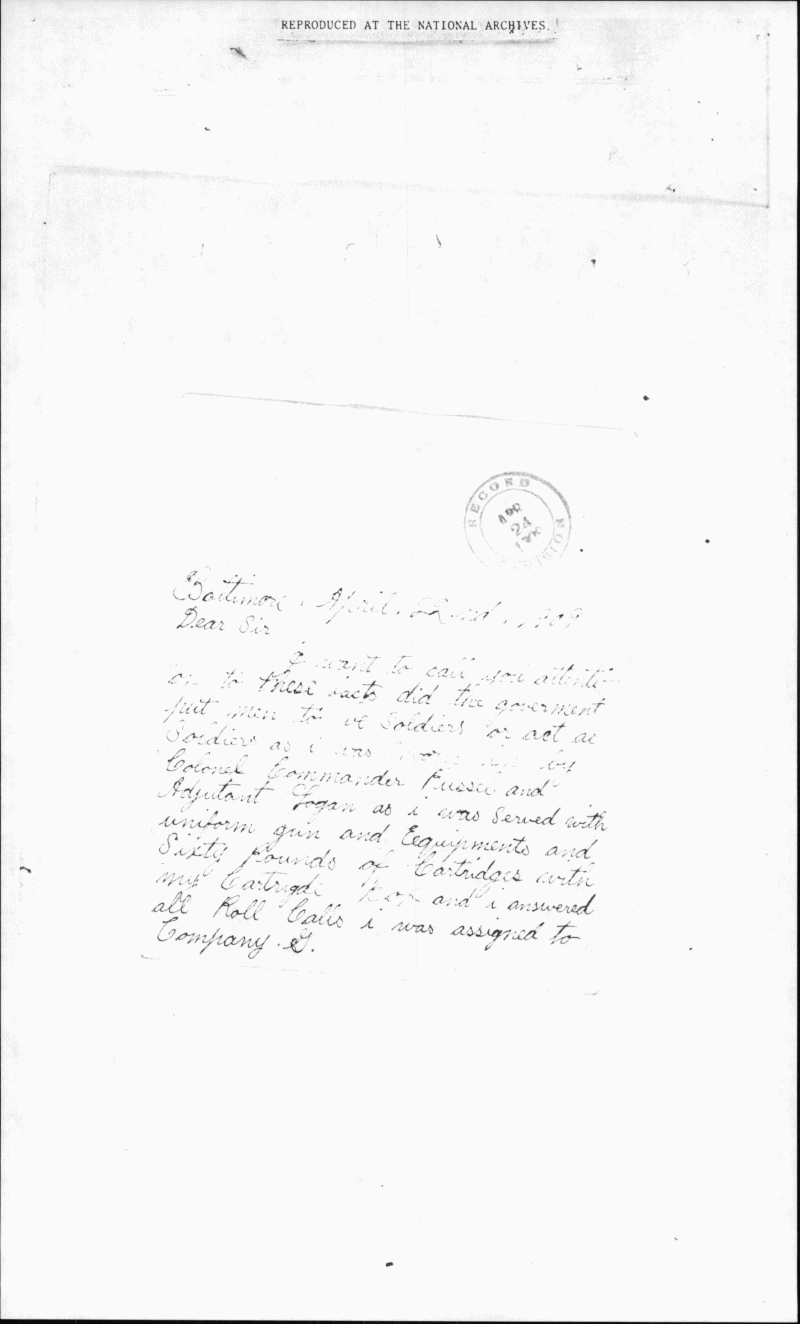 REPRODUCED AT THE NATIONAL ARCHIVES.
RECORD
APR
24
DIVISION
Baltimore. April. 22nd. 1909
Dear Sir
I want to call you attenti
on to these facts did the goverment
put men to be Soldiers or act as
Soldiers as i was by
Colonel Commander Russel and
Adjutant Logan as i was Served with
uniform gun and Eequipments and
Sixty Rounds of Cartridges with
my Cartrigde Box and i answered
all Roll Calls i was assigned to
Company. G.